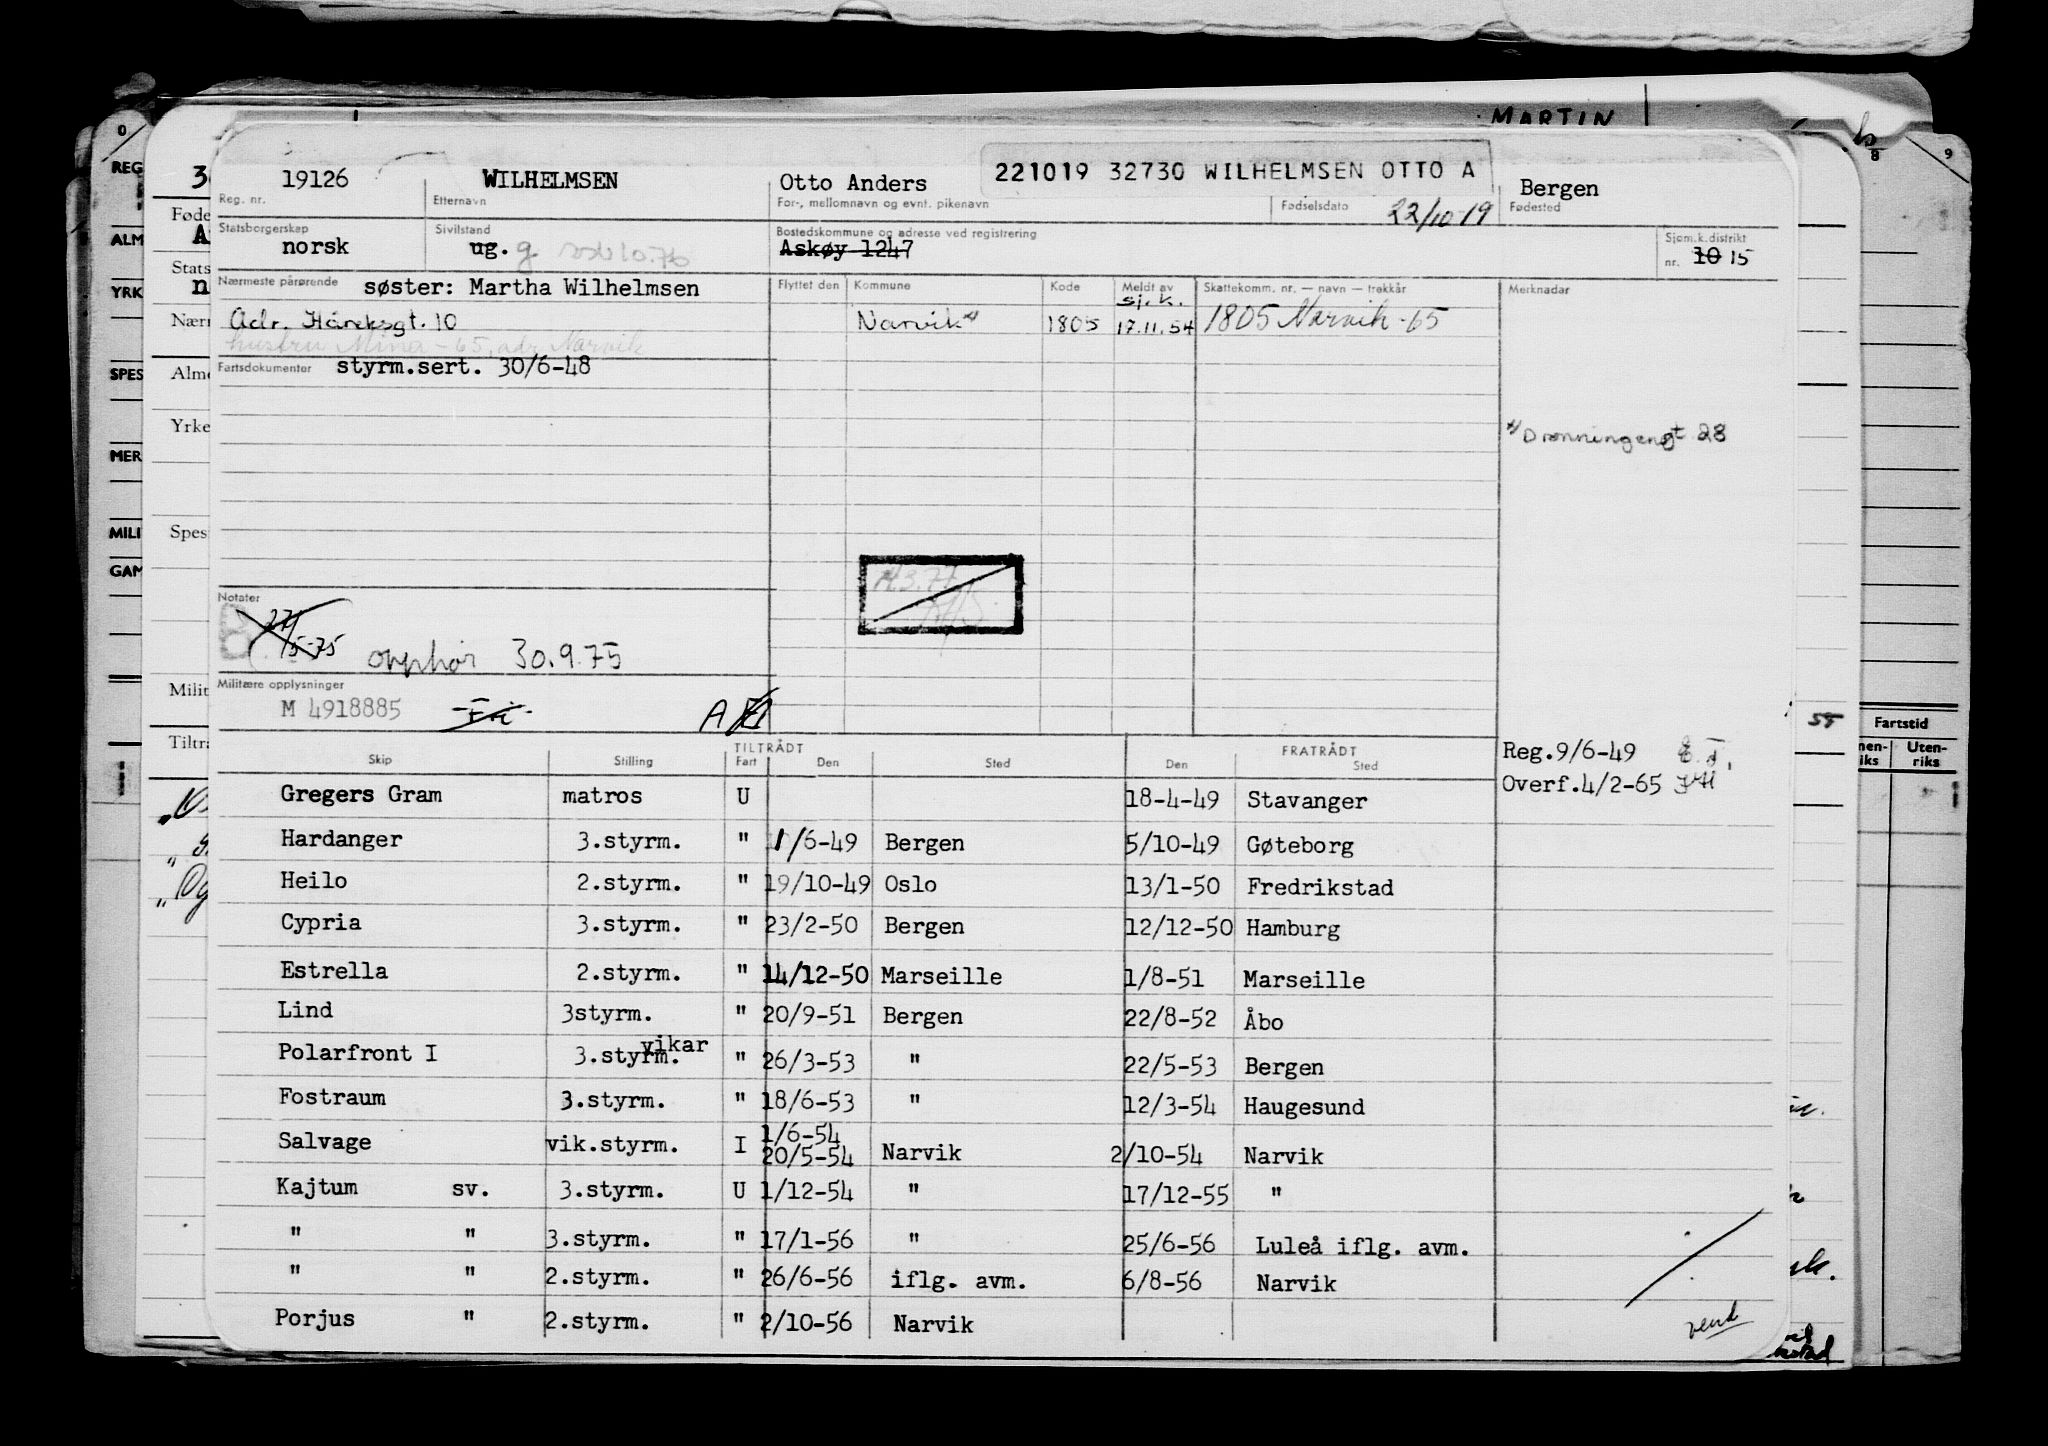 MARTIN
19126 WILHELMSEN Otto Anders 221019 32730 WILHELMSEN OTTO A Bergen
Reg. nr. Etternavn For-, mellomnavn og evnt. pikenavn Fødselsdato 22/10-19 Fødested
Statsborgerskap norsk Sivilstand ug. g Bostedskommune og adresse ved registrering Askøy 1247 Sjøm.k.distrikt nr. 10 15
Nærmeste pårørende søster: Martha Wilhelmsen Flyttet den Kommune Kode Meldt av sj.k. Skattekomm. nr. — navn — trekkår Merknader
Adr. Håreksgt. 10 Narvik x) 1805 17.11.54 1805 Narvik -65
hustru Mina -65, adr. Narvik
Fartsdokumenter styrm.sert. 30/6-48
x) Dronningensgt 28
Notater
27/5-75 opphør 30.9.75
Militære opplysninger
M 4918885 -Fri- A
TILTRÅDT FRATRÅDT Reg.9/6-49
Skip Stilling Fart Den Sted Den Sted Overf.4/2-65
Gregers Gram matros U 18-4-49 Stavanger
Hardanger 3.styrm. " 1/6-49 Bergen 5/10-49 Gøteborg
Heilo 2.styrm. " 19/10-49 Oslo 13/1-50 Fredrikstad
Cypria 3.styrm. " 23/2-50 Bergen 12/12-50 Hamburg
Estrella 2.styrm. " 14/12-50 Marseille 1/8-51 Marseille
Lind 3styrm. " 20/9-51 Bergen 22/8-52 Åbo
Polarfront I 3.styrm. vikar " 26/3-53 " 22/5-53 Bergen
Fostraum 3.styrm. " 18/6-53 " 12/3-54 Haugesund
Salvage vik.styrm. I 1/6-54 20/5-54 Narvik 2/10-54 Narvik
Kajtum sv. 3.styrm. U 1/12-54 " 17/12-55 "
" " 3.styrm. " 17/1-56 " 25/6-56 Luleå iflg. avm.
" " 2.styrm. " 26/6-56 iflg. avm. 6/8-56 Narvik
Porjus " 2.styrm. " 2/10-56 Narvik
vend
Fartstid
Uten-
riks